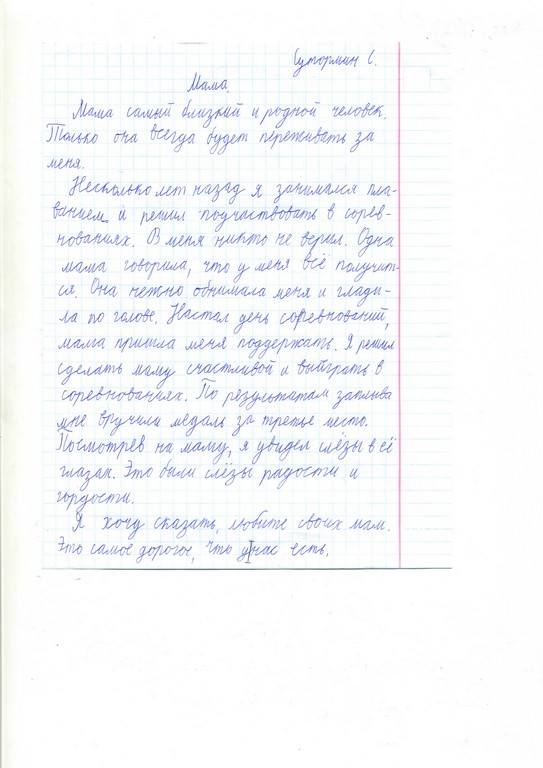 Сутормин С.
Мама.
Мама самый близкий и родной человек.
Только она всегда будет переживать за
меня.
Несколько лет назад я занимался пла-
ванием и решил поучаствовать в сорев-
нованиях. В меня никто не верил. Одна
мама говорила, что у меня всё получит-
ся. Она нежно обнимала меня и глади-
ла по голове. Настал день соревнований,
мама пришла меня поддержать. Я решил
сделать маму счастливой и выиграть в
соревнованиях. По результатам заплыва
мне вручили медаль за третье место.
Посмотрев на маму, я увидел слёзы в её
глазах. Это были слёзы радости и
гордости.
Я хочу сказать, любите своих мам.
Это самое дорогое, что у нас есть.